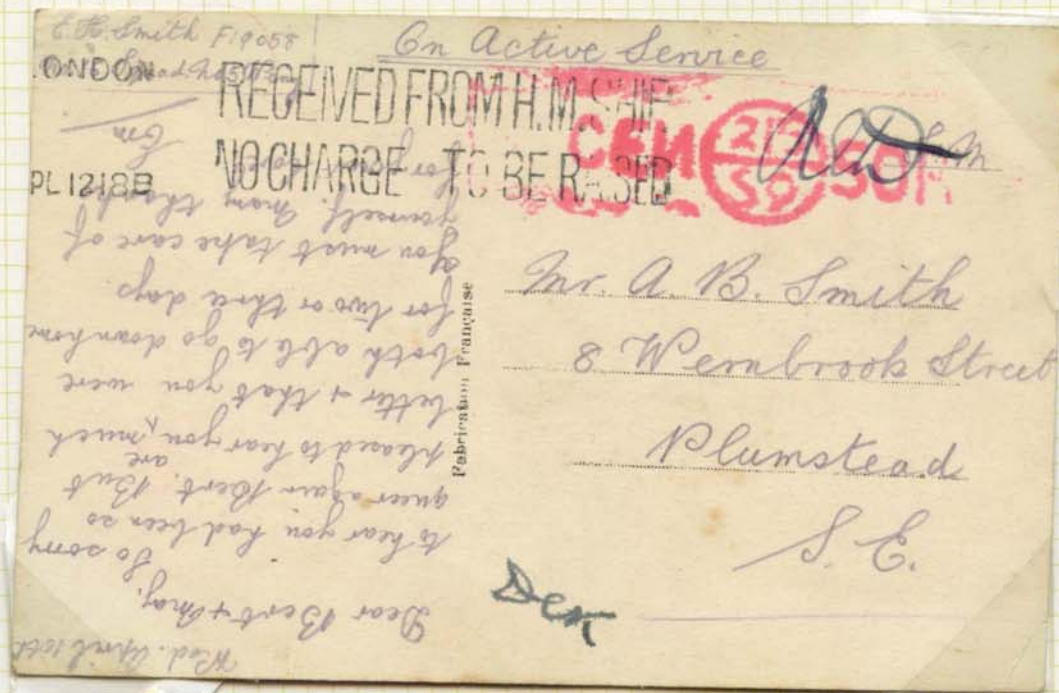 E. H. Smith F19058
On Active Service
LONDON
RECEIVED FROM H.M. SHIP
NO CHARGE TO BE RAISED
PL 1218B
CEN 50R
Mr. A. B. Smith
8 Wernbrook Street
Plumstead
S. E.
Fabrication Française
Wed. April 10th
Dear Bert & May,
So sorry
to hear you had been so
queer again Bert. But
pleased to hear you are much
better & that you were
both able to go down home
for two or three days
You must take care of
yourself. Many thanks
for
Em